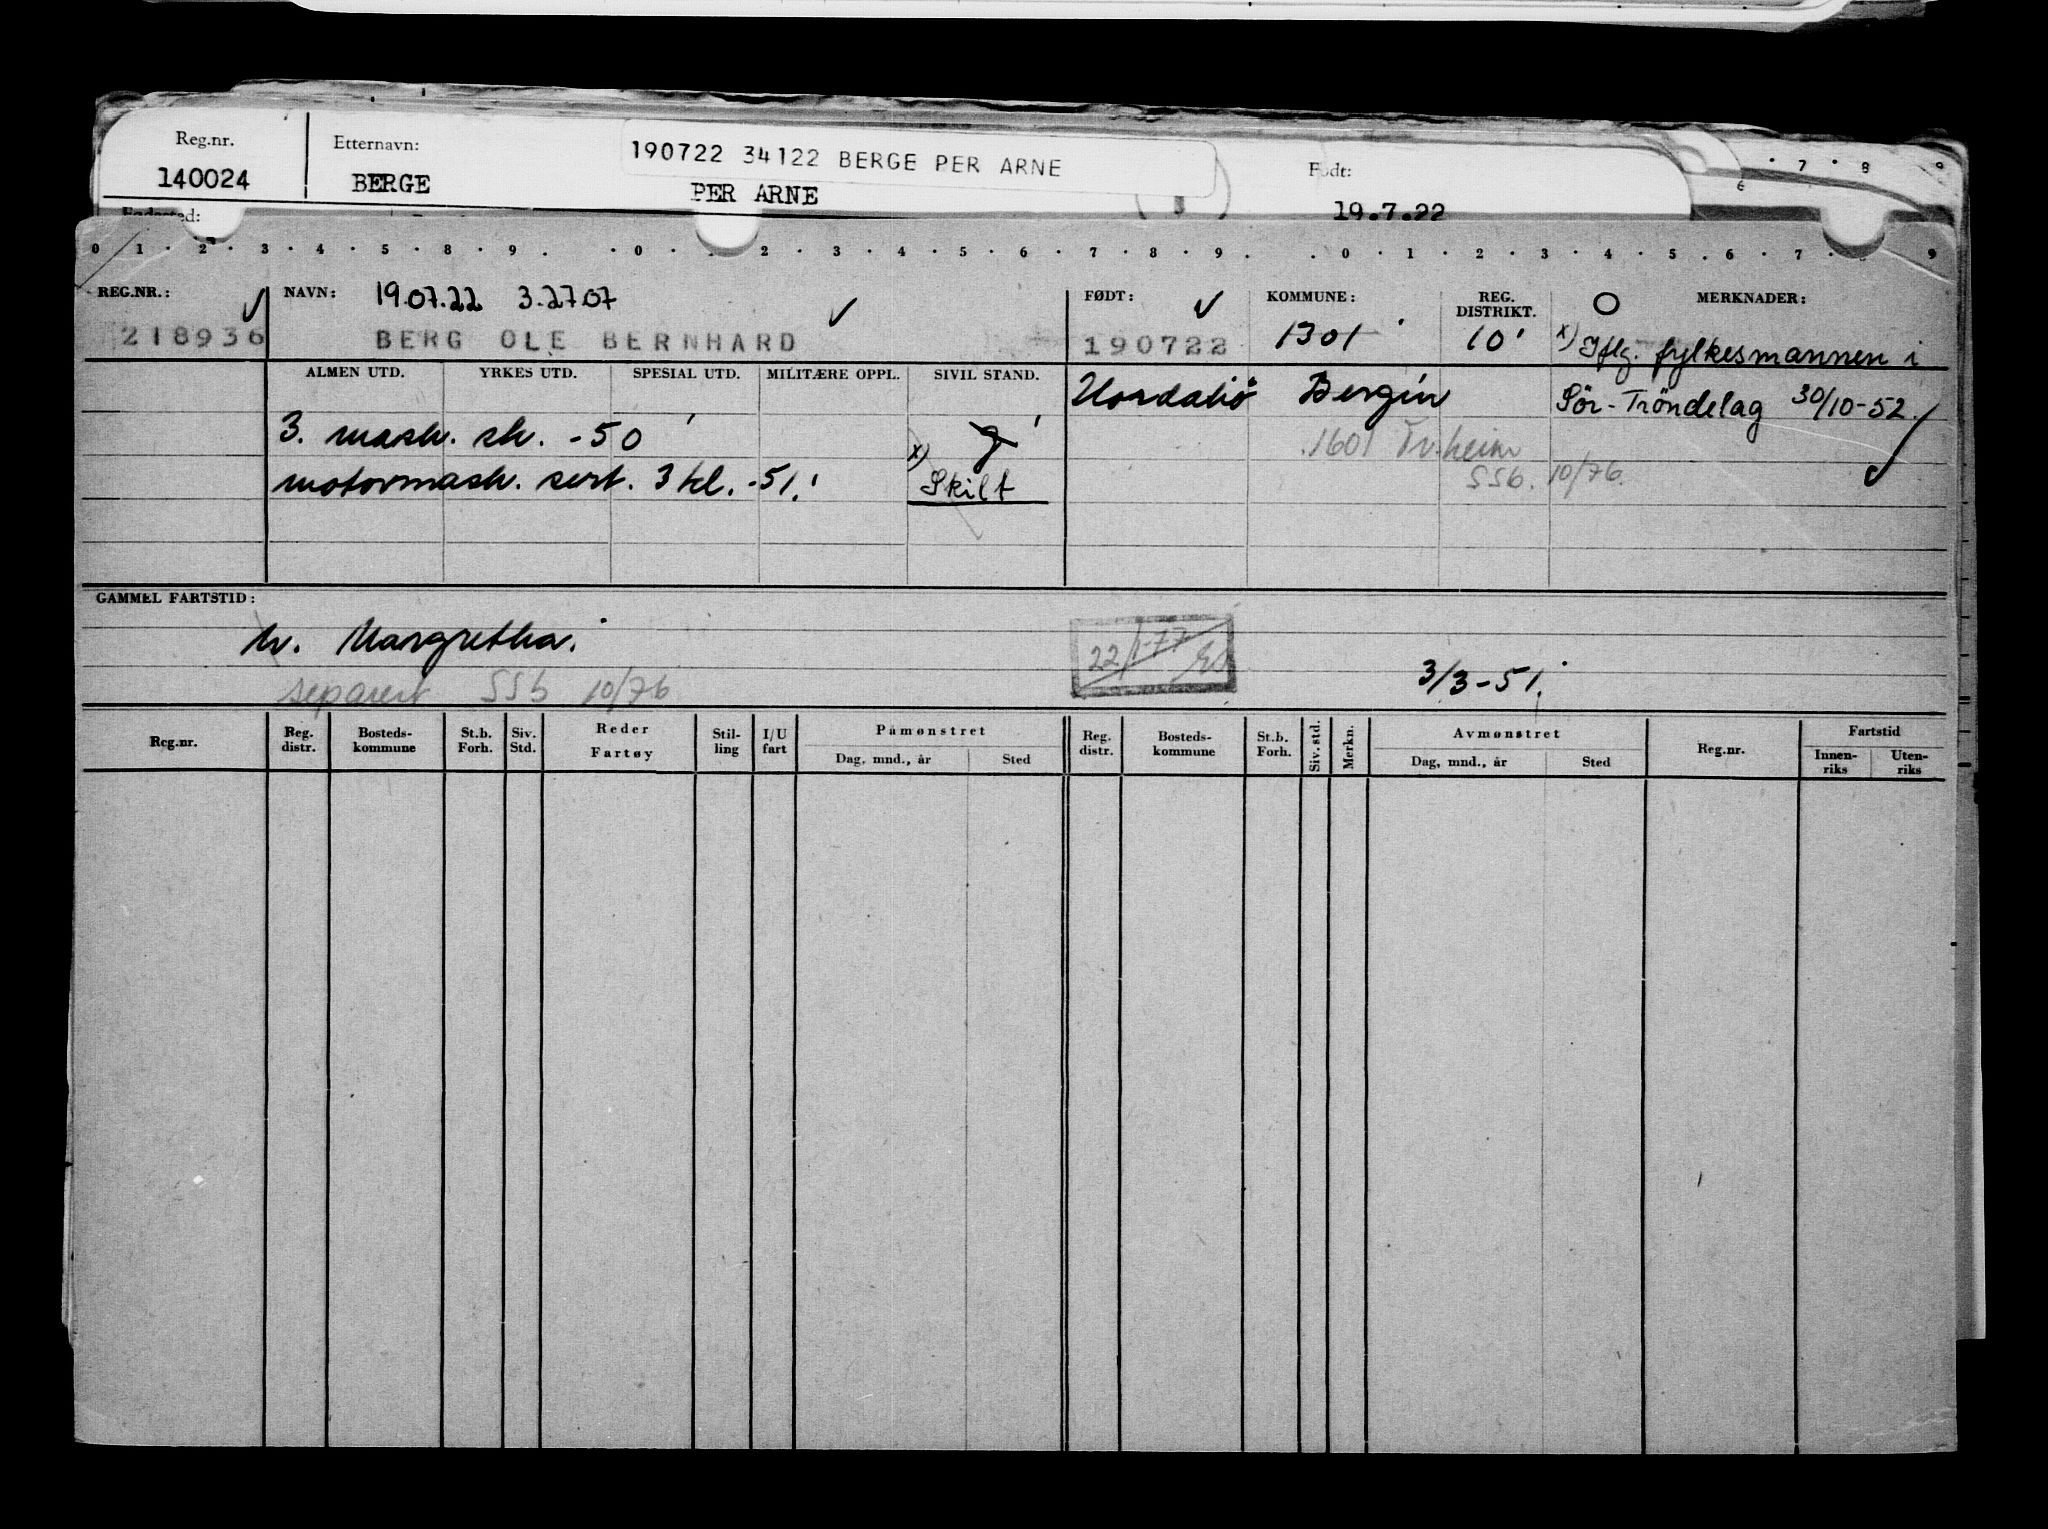 7 · 8 9
6
Reg.nr. Etternavn: 190722 34122 BERGE PER ARNE Født:
140024 BERGE PER ARNE 19.7.22
Fødested:
0 1 · 2 · 3 · 4 · 5 · 8 · 9 . · 0 · 2 · 3 · 4 · 5 · 6 · 7 · 8 · 9 . . 0 · 1 · 2 · 3 · 4 · 5 . 6 · 7 · 9
REG.NR.: NAVN: 19.07.22 3.27.07 FØDT: KOMMUNE: REG. DISTRIKT. MERKNADER:
218936 BERG OLE BERNHARD 190722 1301 10 x) Iflg. fylkesmannen i
ALMEN UTD. YRKES UTD. SPESIAL UTD. MILITÆRE OPPL. SIVIL STAND. Bergen Sör-Tröndelag 30/10-52.
3. mask. sk. -50 g 1601 Tr.heim
motormask. sert. 3 kl. -51. x) Skilt SSb. 10/76.
GAMMEL FARTSTID:
m. Margretha. 22/1-77
3/3-51.
separert SSb 10/76
Reg.nr. Reg. distr. Bosteds-kommune St.b. Forh. Siv. Std. Reder Fartøy Stil-ling I/U fart Påmønstret Reg. distr. Bosteds-kommune St.b. Forh. Siv. std. Merkn. Avmønstret Reg.nr. Fartstid
Dag, mnd., år Sted Dag, mnd., år Sted Innen-riks Uten-riks